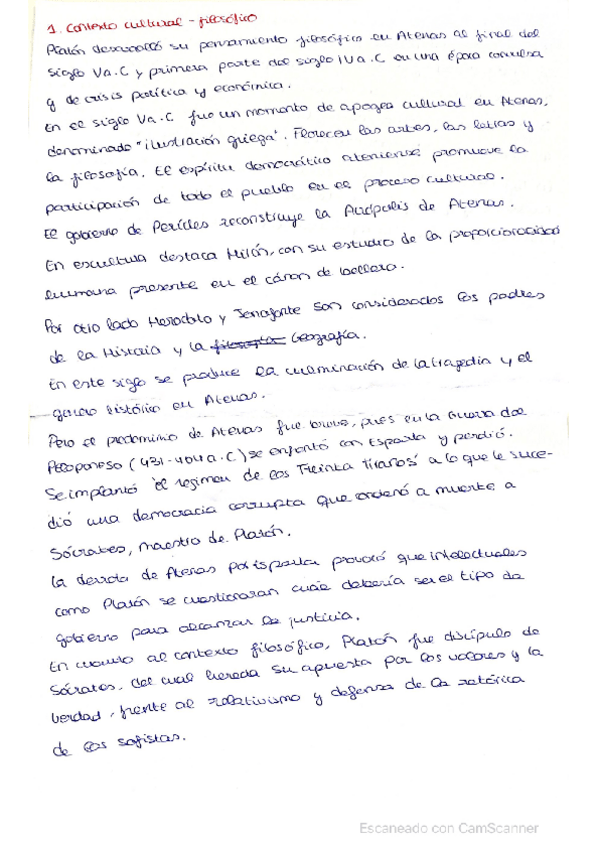 1. Contexto cultural - filosófico
Platón desarrolló su pensamiento filosófico en Atenas al final del
siglo V a.C y primera parte del siglo IV a.C en una época convulsa
y de crisis política y económica.
En el siglo V a.C fue un momento de apogeo cultural en Atenas,
denominado "ilustración griega". Florecen las artes, las letras y
la filosofía. El espíritu democrático ateniense promueve la
participación de todo el pueblo en el proceso cultural.
El gobierno de Pericles reconstruye la Acrópolis de Atenas.
En escultura destaca Milón, con su estudio de la proporcionalidad
humana presente en el cánon de belleza.
Por otro lado Herodoto y Jenofonte son considerados los padres
de la Historia y la filosofía Geografía.
En este siglo se produce la culminación de la tragedia y el
género histórico en Atenas.
Pero el predominio de Atenas fue breve, pues en la Guerra del
Peloponeso (431-404 a.C) se enfrentó con Esparta y perdió.
Se implantó "el regimen de los Treinta Tiranos" a lo que le suce-
dió una democracia corrupta que ordenó a muerte a
Sócrates, maestro de Platón.
La derrota de Atenas por Esparta provocó que intelectuales
como Platón se cuestionaran cuál debería ser el tipo de
gobierno para alcanzar la justicia.
En cuanto al contexto filosófico, Platón fue discípulo de
Sócrates, del cual hereda su apuesta por los valores y la
verdad, frente al relativismo y defensa de la retórica
de los sofistas.
Escaneado con CamScanner